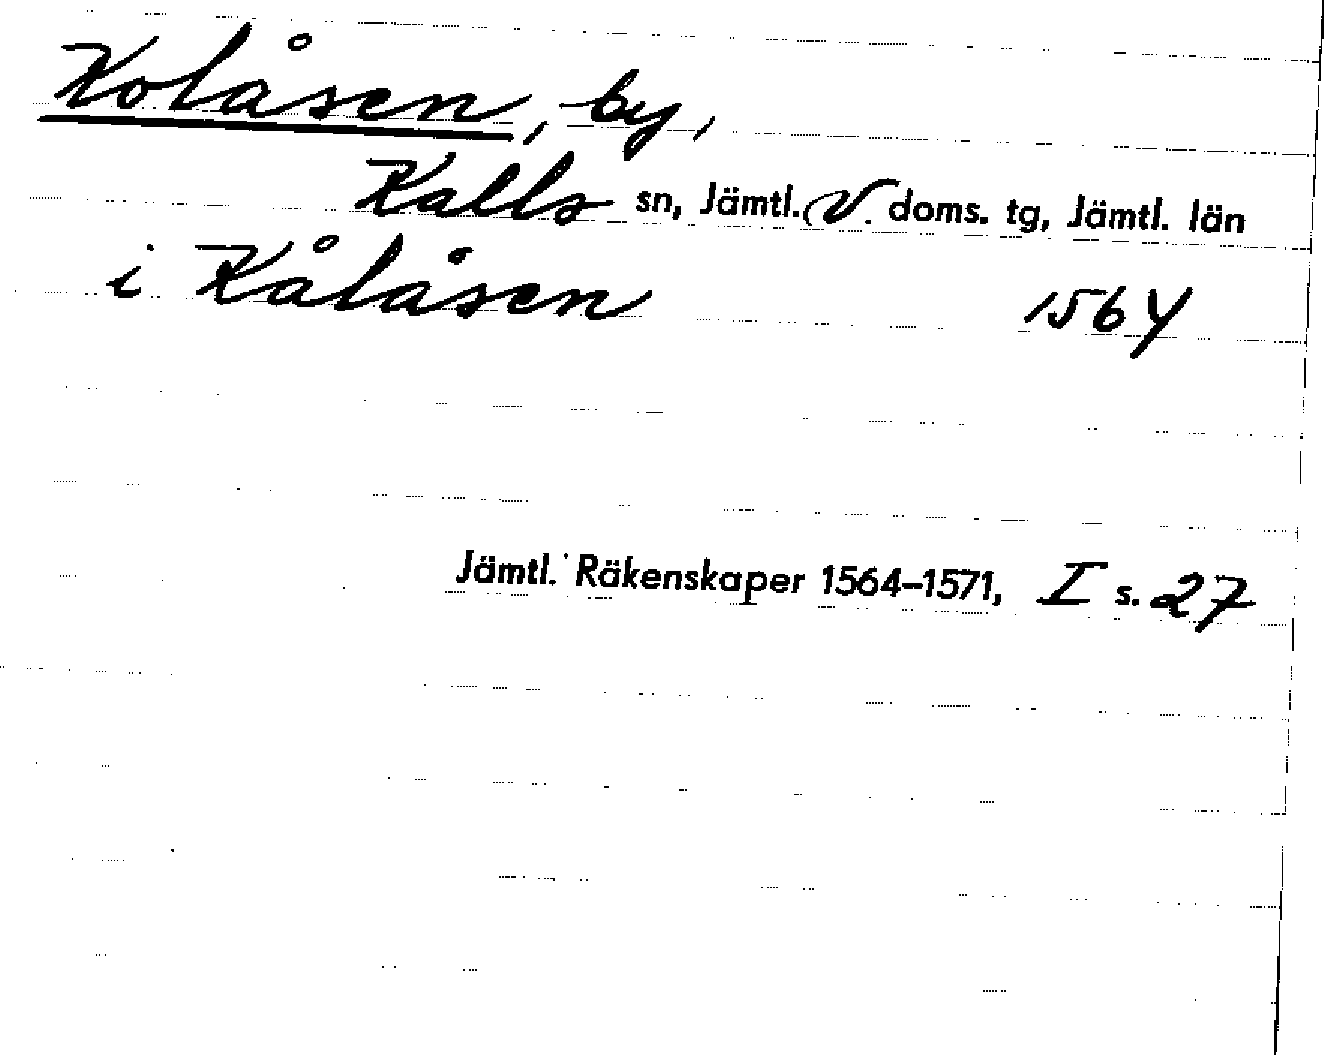 Kolåsen, by,
Kalls sn, Jämtl. V. doms. tg, Jämtl. län
i Kålåsen 1564
Jämtl. Räkenskaper 1564–1571, I s. 27